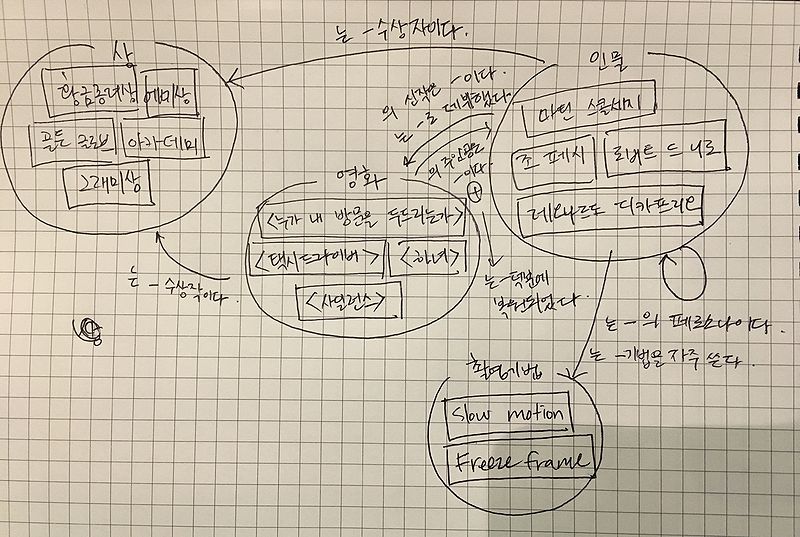 는 -수상자이다.
상
황금종려상 에미상
골든 글로브 아카데미
그래미상
인물
마틴 스콜세지
조 페시 로버트 드 니로
레오나르도 디카프리오
의 신작은 -이다.
는 -로 데뷔했다.
의 주인공은
-이다.
영화
<누가 내 방문을 두드리는가>
<택시드라이버> <하녀>
<사일런스>
는 -수상작이다.
는 -덕분에
복원되었다.
는 -의 페르소나이다.
는 -기법을 자주 쓴다.
촬영기법
Slow motion
Freeze frame